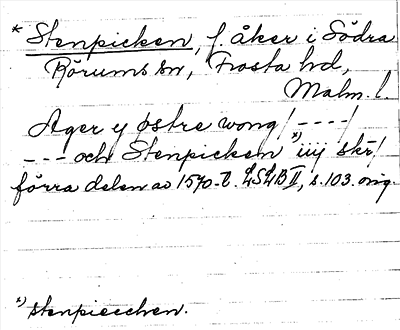 * Stenpicken, f. åker i Södra
Rörums sn, Frosta hd,
Malm. l.
Ager y østre wong /----/
--- och Stenpicken x) iiij skr̄/
förra delen av 1570-t. LSLB II, s. 103. orig.
x) stenpicchen.